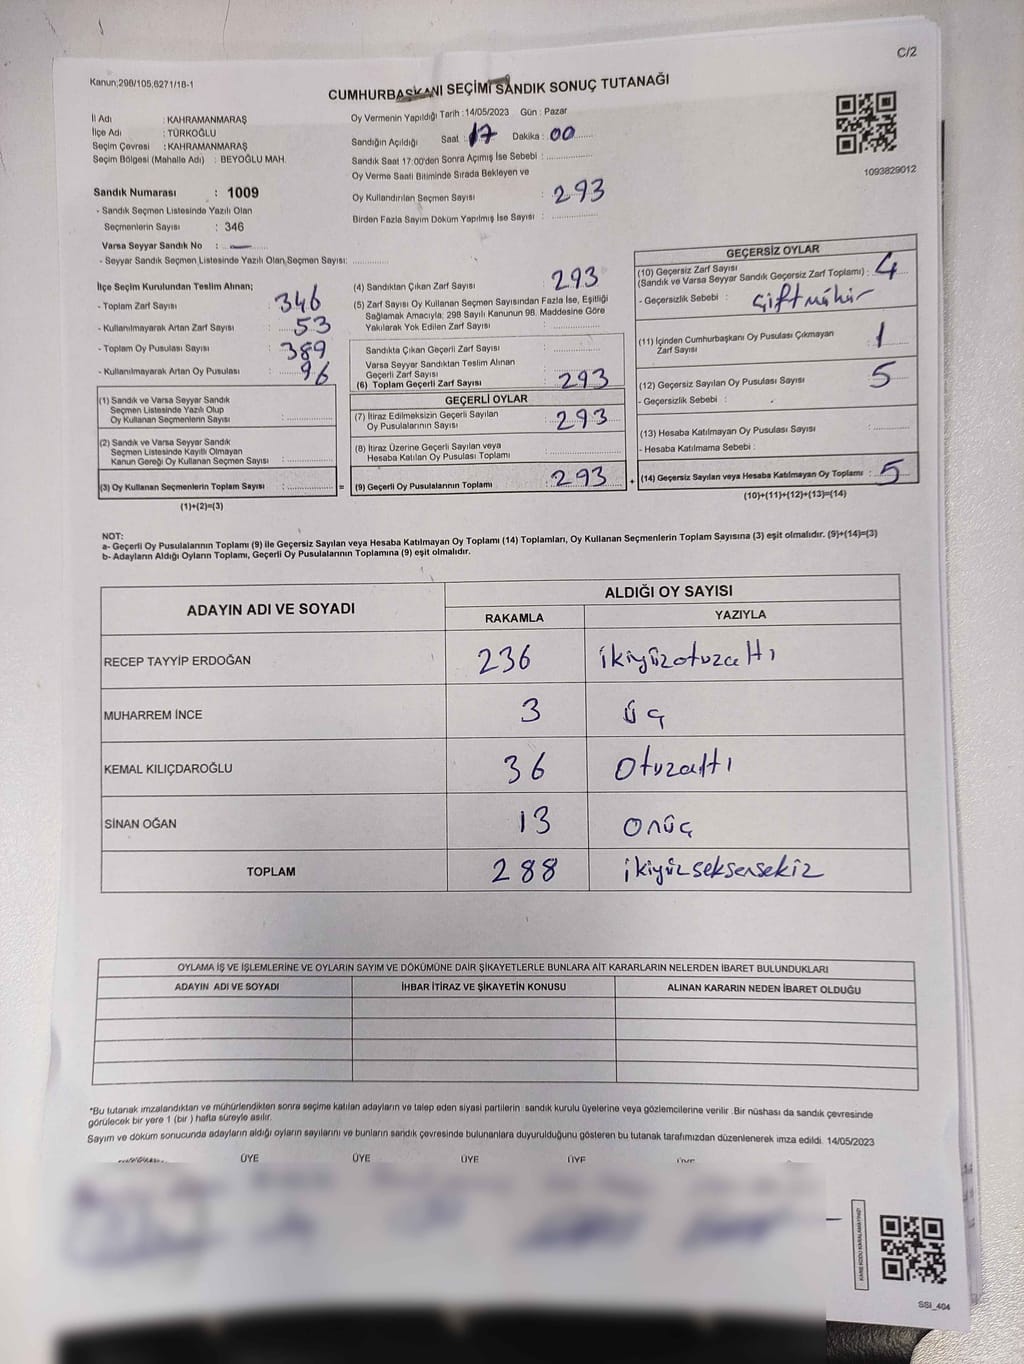 C/2
Kanun;298/105,6271/18-1
CUMHURBAŞKANI SEÇİMİ SANDIK SONUÇ TUTANAĞI
İl Adı : KAHRAMANMARAŞ
İlçe Adı : TÜRKOĞLU
Seçim Çevresi : KAHRAMANMARAŞ
Seçim Bölgesi (Mahalle Adı) : BEYOĞLU MAH.
Oy Vermenin Yapıldığı Tarih : 14/05/2023 Gün : Pazar
Sandığın Açıldığı Saat : 17 Dakika : 00
Sandık Saat 17:00'den Sonra Açımış İse Sebebi :
Oy Verme Saati Bitiminde Sırada Bekleyen ve
Oy Kullandırılan Seçmen Sayısı : 293
Birden Fazla Sayım Döküm Yapılmış İse Sayısı :
1093829012
Sandık Numarası : 1009
- Sandık Seçmen Listesinde Yazılı Olan
Seçmenlerin Sayısı : 346
Varsa Seyyar Sandık No : —
- Seyyar Sandık Seçmen Listesinde Yazılı Olan Seçmen Sayısı:
İlçe Seçim Kurulundan Teslim Alınan;
- Toplam Zarf Sayısı : 346
- Kullanılmayarak Artan Zarf Sayısı : 53
- Toplam Oy Pusulası Sayısı : 389
- Kullanılmayarak Artan Oy Pusulası : 96
(1) Sandık ve Varsa Seyyar Sandık
Seçmen Listesinde Yazılı Olup
Oy Kullanan Seçmenlerin Sayısı :
(2) Sandık ve Varsa Seyyar Sandık
Seçmen Listesinde Kayıtlı Olmayan
Kanun Gereği Oy Kullanan Seçmen Sayısı :
(3) Oy Kullanan Seçmenlerin Toplam Sayısı :
(1)+(2)=(3)
=
(4) Sandıktan Çıkan Zarf Sayısı : 293
(5) Zarf Sayısı Oy Kullanan Seçmen Sayısından Fazla İse, Eşitliği
Sağlamak Amacıyla; 298 Sayılı Kanunun 98. Maddesine Göre
Yakılarak Yok Edilen Zarf Sayısı :
Sandıkta Çıkan Geçerli Zarf Sayısı :
Varsa Seyyar Sandıktan Teslim Alınan
Geçerli Zarf Sayısı :
(6) Toplam Geçerli Zarf Sayısı : 293
GEÇERLİ OYLAR
(7) İtiraz Edilmeksizin Geçerli Sayılan
Oy Pusulalarının Sayısı : 293
(8) İtiraz Üzerine Geçerli Sayılan veya
Hesaba Katılan Oy Pusulası Toplamı :
(9) Geçerli Oy Pusulalarının Toplamı : 293
+
GEÇERSİZ OYLAR
(10) Geçersiz Zarf Sayısı
(Sandık ve Varsa Seyyar Sandık Geçersiz Zarf Toplamı) : 4
- Geçersizlik Sebebi : çift mühür
(11) İçinden Cumhurbaşkanı Oy Pusulası Çıkmayan
Zarf Sayısı : 1
(12) Geçersiz Sayılan Oy Pusulası Sayısı : 5
- Geçersizlik Sebebi :
(13) Hesaba Katılmayan Oy Pusulası Sayısı :
- Hesaba Katılmama Sebebi :
(14) Geçersiz Sayılan veya Hesaba Katılmayan Oy Toplamı : 5
(10)+(11)+(12)+(13)=(14)
NOT:
a- Geçerli Oy Pusulalarının Toplamı (9) ile Geçersiz Sayılan veya Hesaba Katılmayan Oy Toplamı (14) Toplamları, Oy Kullanan Seçmenlerin Toplam Sayısına (3) eşit olmalıdır. (9)+(14)=(3)
b- Adayların Aldığı Oyların Toplamı, Geçerli Oy Pusulalarının Toplamına (9) eşit olmalıdır.
ADAYIN ADI VE SOYADI ALDIĞI OY SAYISI
RAKAMLA YAZIYLA
RECEP TAYYİP ERDOĞAN 236 ikiyüzotuzaltı
MUHARREM İNCE 3 üç
KEMAL KILIÇDAROĞLU 36 Otuzaltı
SİNAN OĞAN 13 onüç
TOPLAM 288 ikiyüzseksensekiz
OYLAMA İŞ VE İŞLEMLERİNE VE OYLARIN SAYIM VE DÖKÜMÜNE DAİR ŞİKAYETLERLE BUNLARA AİT KARARLARIN NELERDEN İBARET BULUNDUKLARI
ADAYIN ADI VE SOYADI İHBAR İTİRAZ VE ŞİKAYETİN KONUSU ALINAN KARARIN NEDEN İBARET OLDUĞU
*Bu tutanak imzalandıktan ve mühürlendikten sonra seçime katılan adayların ve talep eden siyasi partilerin sandık kurulu üyelerine veya gözlemcilerine verilir .Bir nüshası da sandık çevresinde
görülecek bir yere 1 (bir ) hafta süreyle asılır.
Sayım ve döküm sonucunda adayların aldığı oyların sayılarını ve bunların sandık çevresinde bulunanlara duyurulduğunu gösteren bu tutanak tarafımızdan düzenlenerek imza edildi. 14/05/2023
ÜYE ÜYE ÜYE ÜYE ÜYE
KARE KODU KARALAMAYINIZ!
SSI_404